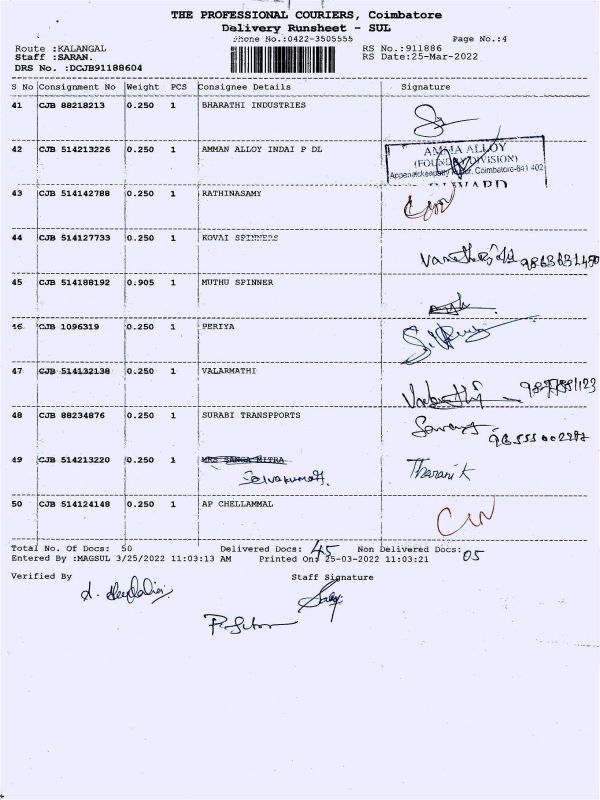 THE PROFESSIONAL COURIERS, Coimbatore
Delivery Runsheet - SUL
Phone No.:0422-3505555 Page No.:4
Route :KALANGAL RS No.:911886
Staff :SARAN. RS Date:25-Mar-2022
DRS No. :DCJB91188604
S No Consignment No Weight PCS Consignee Details Signature
41 CJB 88218213 0.250 1 BHARATHI INDUSTRIES
42 CJB 514213226 0.250 1 AMMAN ALLOY INDAI P DL
AMMA ALLOY
(FOUNDRY DIVISION)
Coimbatore-641 402
43 CJB 514142788 0.250 1 RATHINASAMY
44 CJB 514127733 0.250 1 KOVAI SPINNERS
45 CJB 514188192 0.905 1 MUTHU SPINNER
46 CJB 1096319 0.250 1 PERIYA
47 CJB 514132138 0.250 1 VALARMATHI
48 CJB 88234876 0.250 1 SURABI TRANSPPORTS
49 CJB 514213220 0.250 1 MRS SANGA MITRA
Selvakumar. Tharani K
50 CJB 514124148 0.250 1 AP CHELLAMMAL
Total No. Of Docs: 50 Delivered Docs: 45 Non Delivered Docs: 05
Entered By :MAGSUL 3/25/2022 11:03:13 AM Printed On: 25-03-2022 11:03:21
Verified By Staff Signature